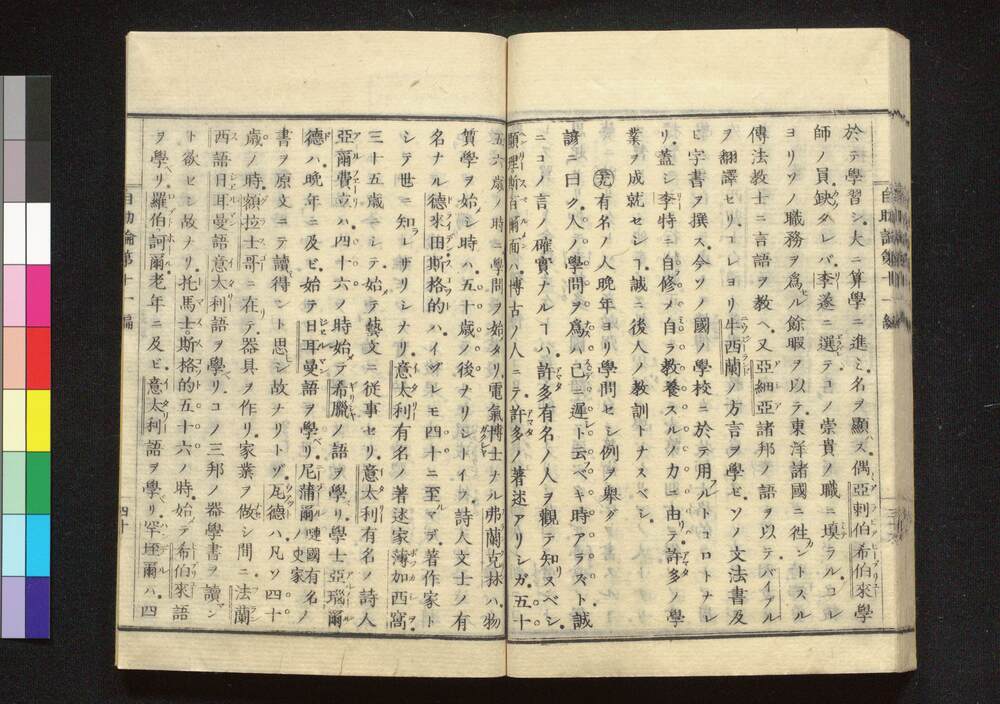 於テ學習シ、大ニ算學ニ進ミ、名ヲ顯ハス、偶亞剌伯希伯來學
師ノ員缺タレバ、李遂ニ選テコノ崇貴ノ職ニ填ラル、コレ
ヨリソノ職務ヲ爲セル餘暇ヲ以テ、東洋諸國ニ徃カントスル
傳法教士ニ言語ヲ教ヘ、又亞細亞諸邦ノ語ヲ以テ、バイブル
ヲ翻譯セリ、コレヨリ牛西蘭ノ方言ヲ學ビ、ソノ文法書及
ビ字書ヲ撰ス、今ソノ國ノ學校ニ於テ用フルトコロトナレ
リ、蓋シ李特ニ自修ノ自ラ教養スルノ力ニ由リ、テ許多ノ學
業ヲ成就セシハ、誠ニ後人ノ教訓トナスベシ、
有名ノ人晩年ヨリ學問セシ例ヲ舉グ
諺ニ曰ク、人ノ學問ヲ爲ハ、己ニ遲シト云ベキ時アラズト、誠
ニコノ言ノ確實ナルヿハ、許多有名ノ人ヲ觀テ知ヌベシ、
顯理斯百爾面ハ、博古ノ人ニテ、許多ノ著述アリシガ、五十
五六歳ノ時ニ學問ヲ始タリ、電氣博士ナル弗蘭克林ハ、物
質學ヲ始メシ時ハ、五十歳ノ後ナリシトイフ、詩人文士ノ有
名ナル德來田斯格的ハ、イヅレモ四十ニ至ルマデ、著作家ト
シテ世ニ知ラレザリシナリ、意太利有名ノ著述家薄加西窩
三十五歳ニシテ、始メテ藝文ニ從事セリ、意太利有名ノ詩人
亞爾費立ハ、四十六ノ時始メテ希臘ノ語ヲ學リ、學士亞瑙爾
德ハ、晩年ニ及ビ、始テ日耳曼語ヲ學ベリ、尼蒲爾嗹國有名ノ史家ノ
書ヲ原文ニテ讀得ント思ヒシ故ナリトゾ、瓦德ハ、凡ソ四十
歳ノ時、額拉士哥ニ在テ、器具ヲ作リ、家業ヲ做セシ間ニ、法蘭
西語日耳曼語意太利語ヲ學ベリ、コノ三邦ノ器學書ヲ讀マン
ト欲セシ故ナリ、托馬士斯格的五十六ノ時、始テ希伯來語
ヲ學ベリ、羅伯訶爾老年ニ及ビ、意太利語ヲ學ベリ、罕垤爾ハ、四
自助論第十一編
四十